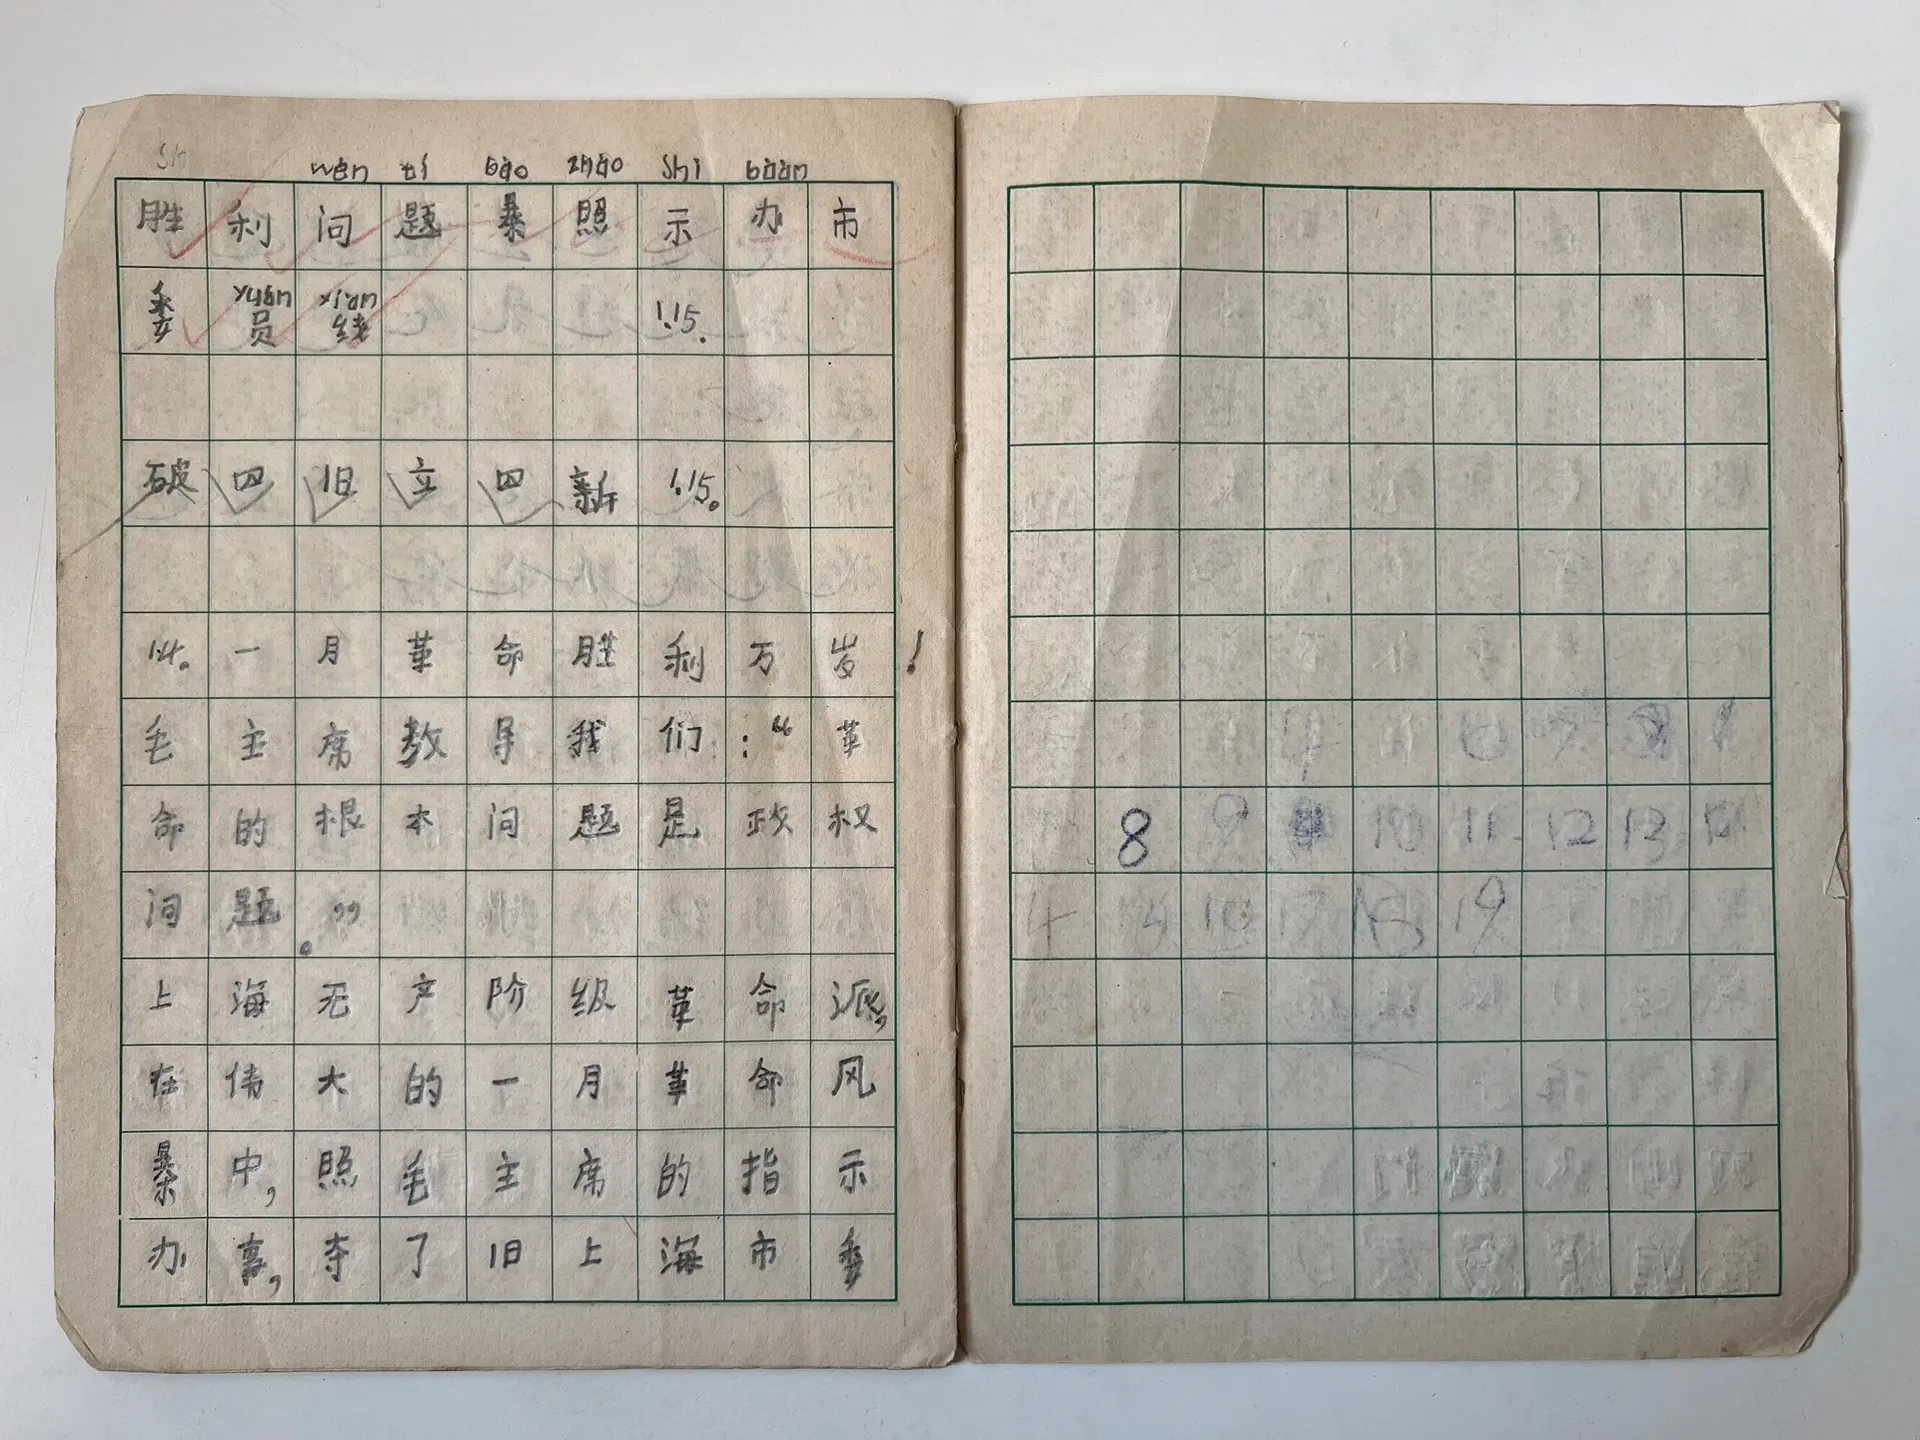 wèn tí bào zhào shì bààn
胜利问题暴照示办市
yuán xiàn
委员线 1.15.
破四旧立四新 1.15。
14。一月革命胜利万岁!
毛主席教导我们:“革
命的根本问题是政权
问题。”
上海无产阶级革命派,
在伟大的一月革命风
暴中,照毛主席的指示
办事,夺了旧上海市委
8 9 10 11 12 13 14
17 18 19